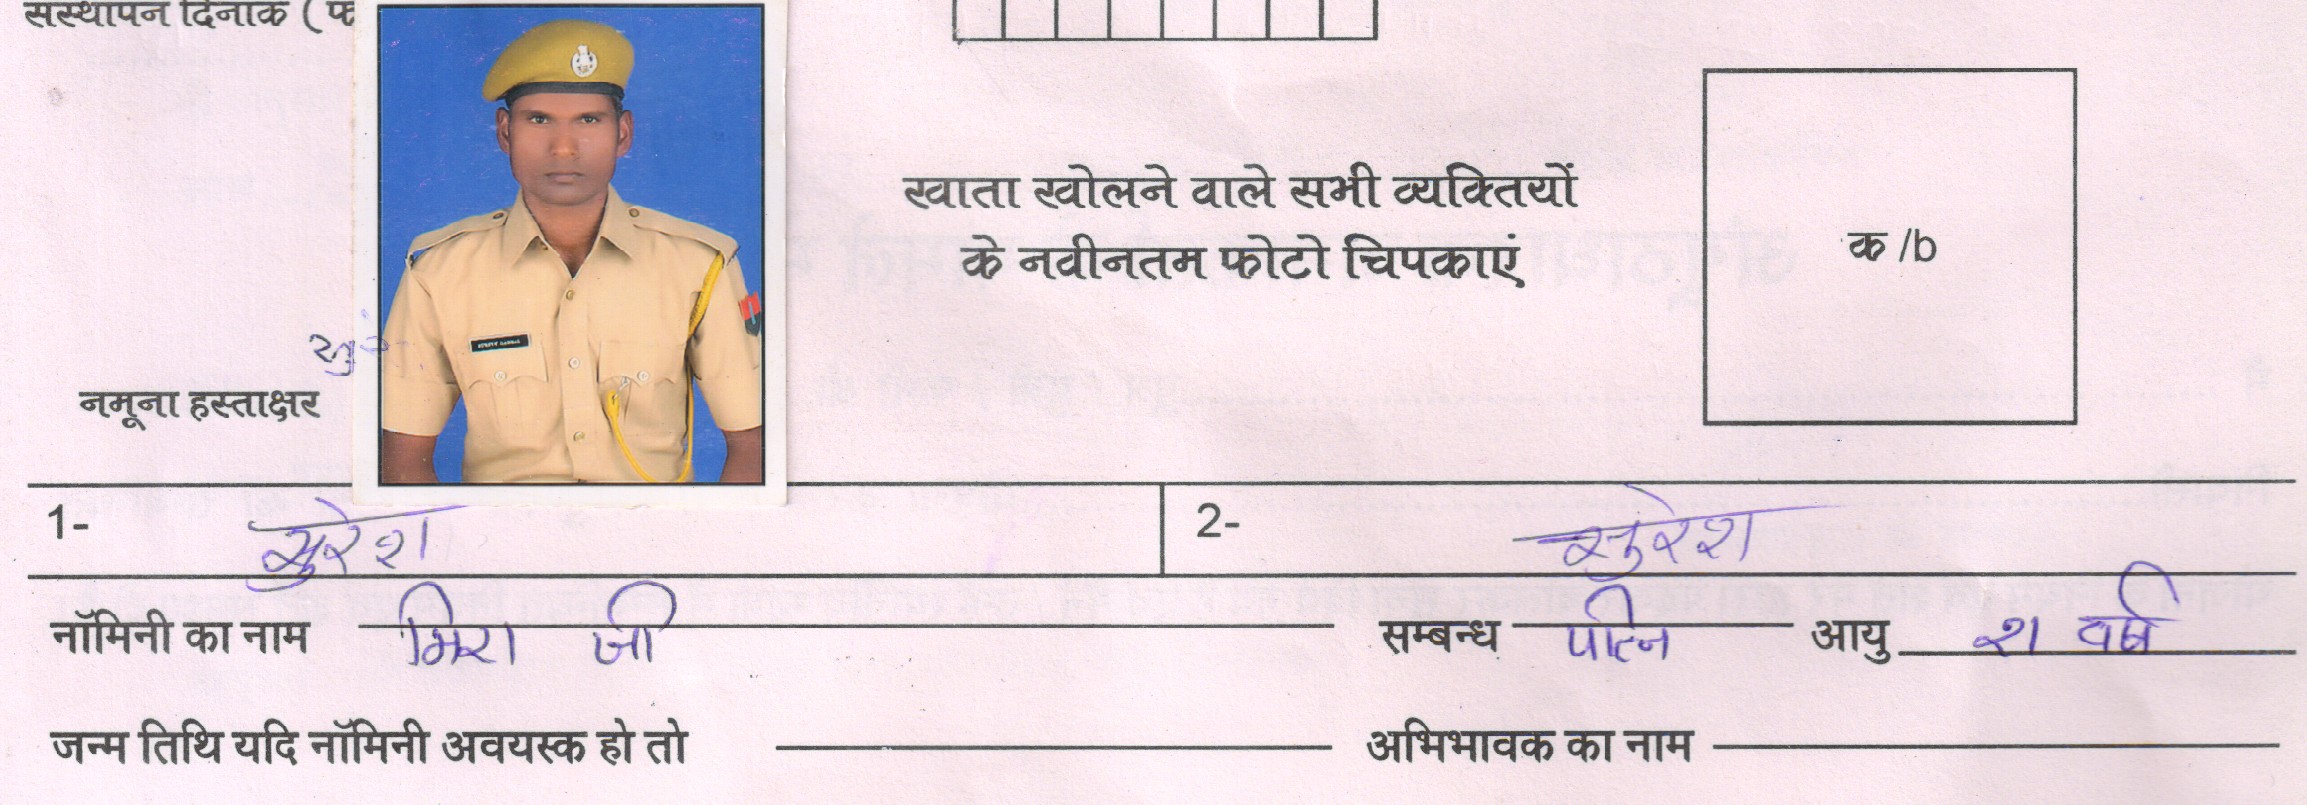 संस्थापन दिनांक ( फ
खाता खोलने वाले सभी व्यक्तियों
के नवीनतम फोटो चिपकाएं
क /b
नमूना हस्ताक्षर
1- सुरेश 2- सुरेश
नॉमिनी का नाम मिरा जी सम्बन्ध पत्नि आयु २१ वर्ष
जन्म तिथि यदि नॉमिनी अवयस्क हो तो अभिभावक का नाम